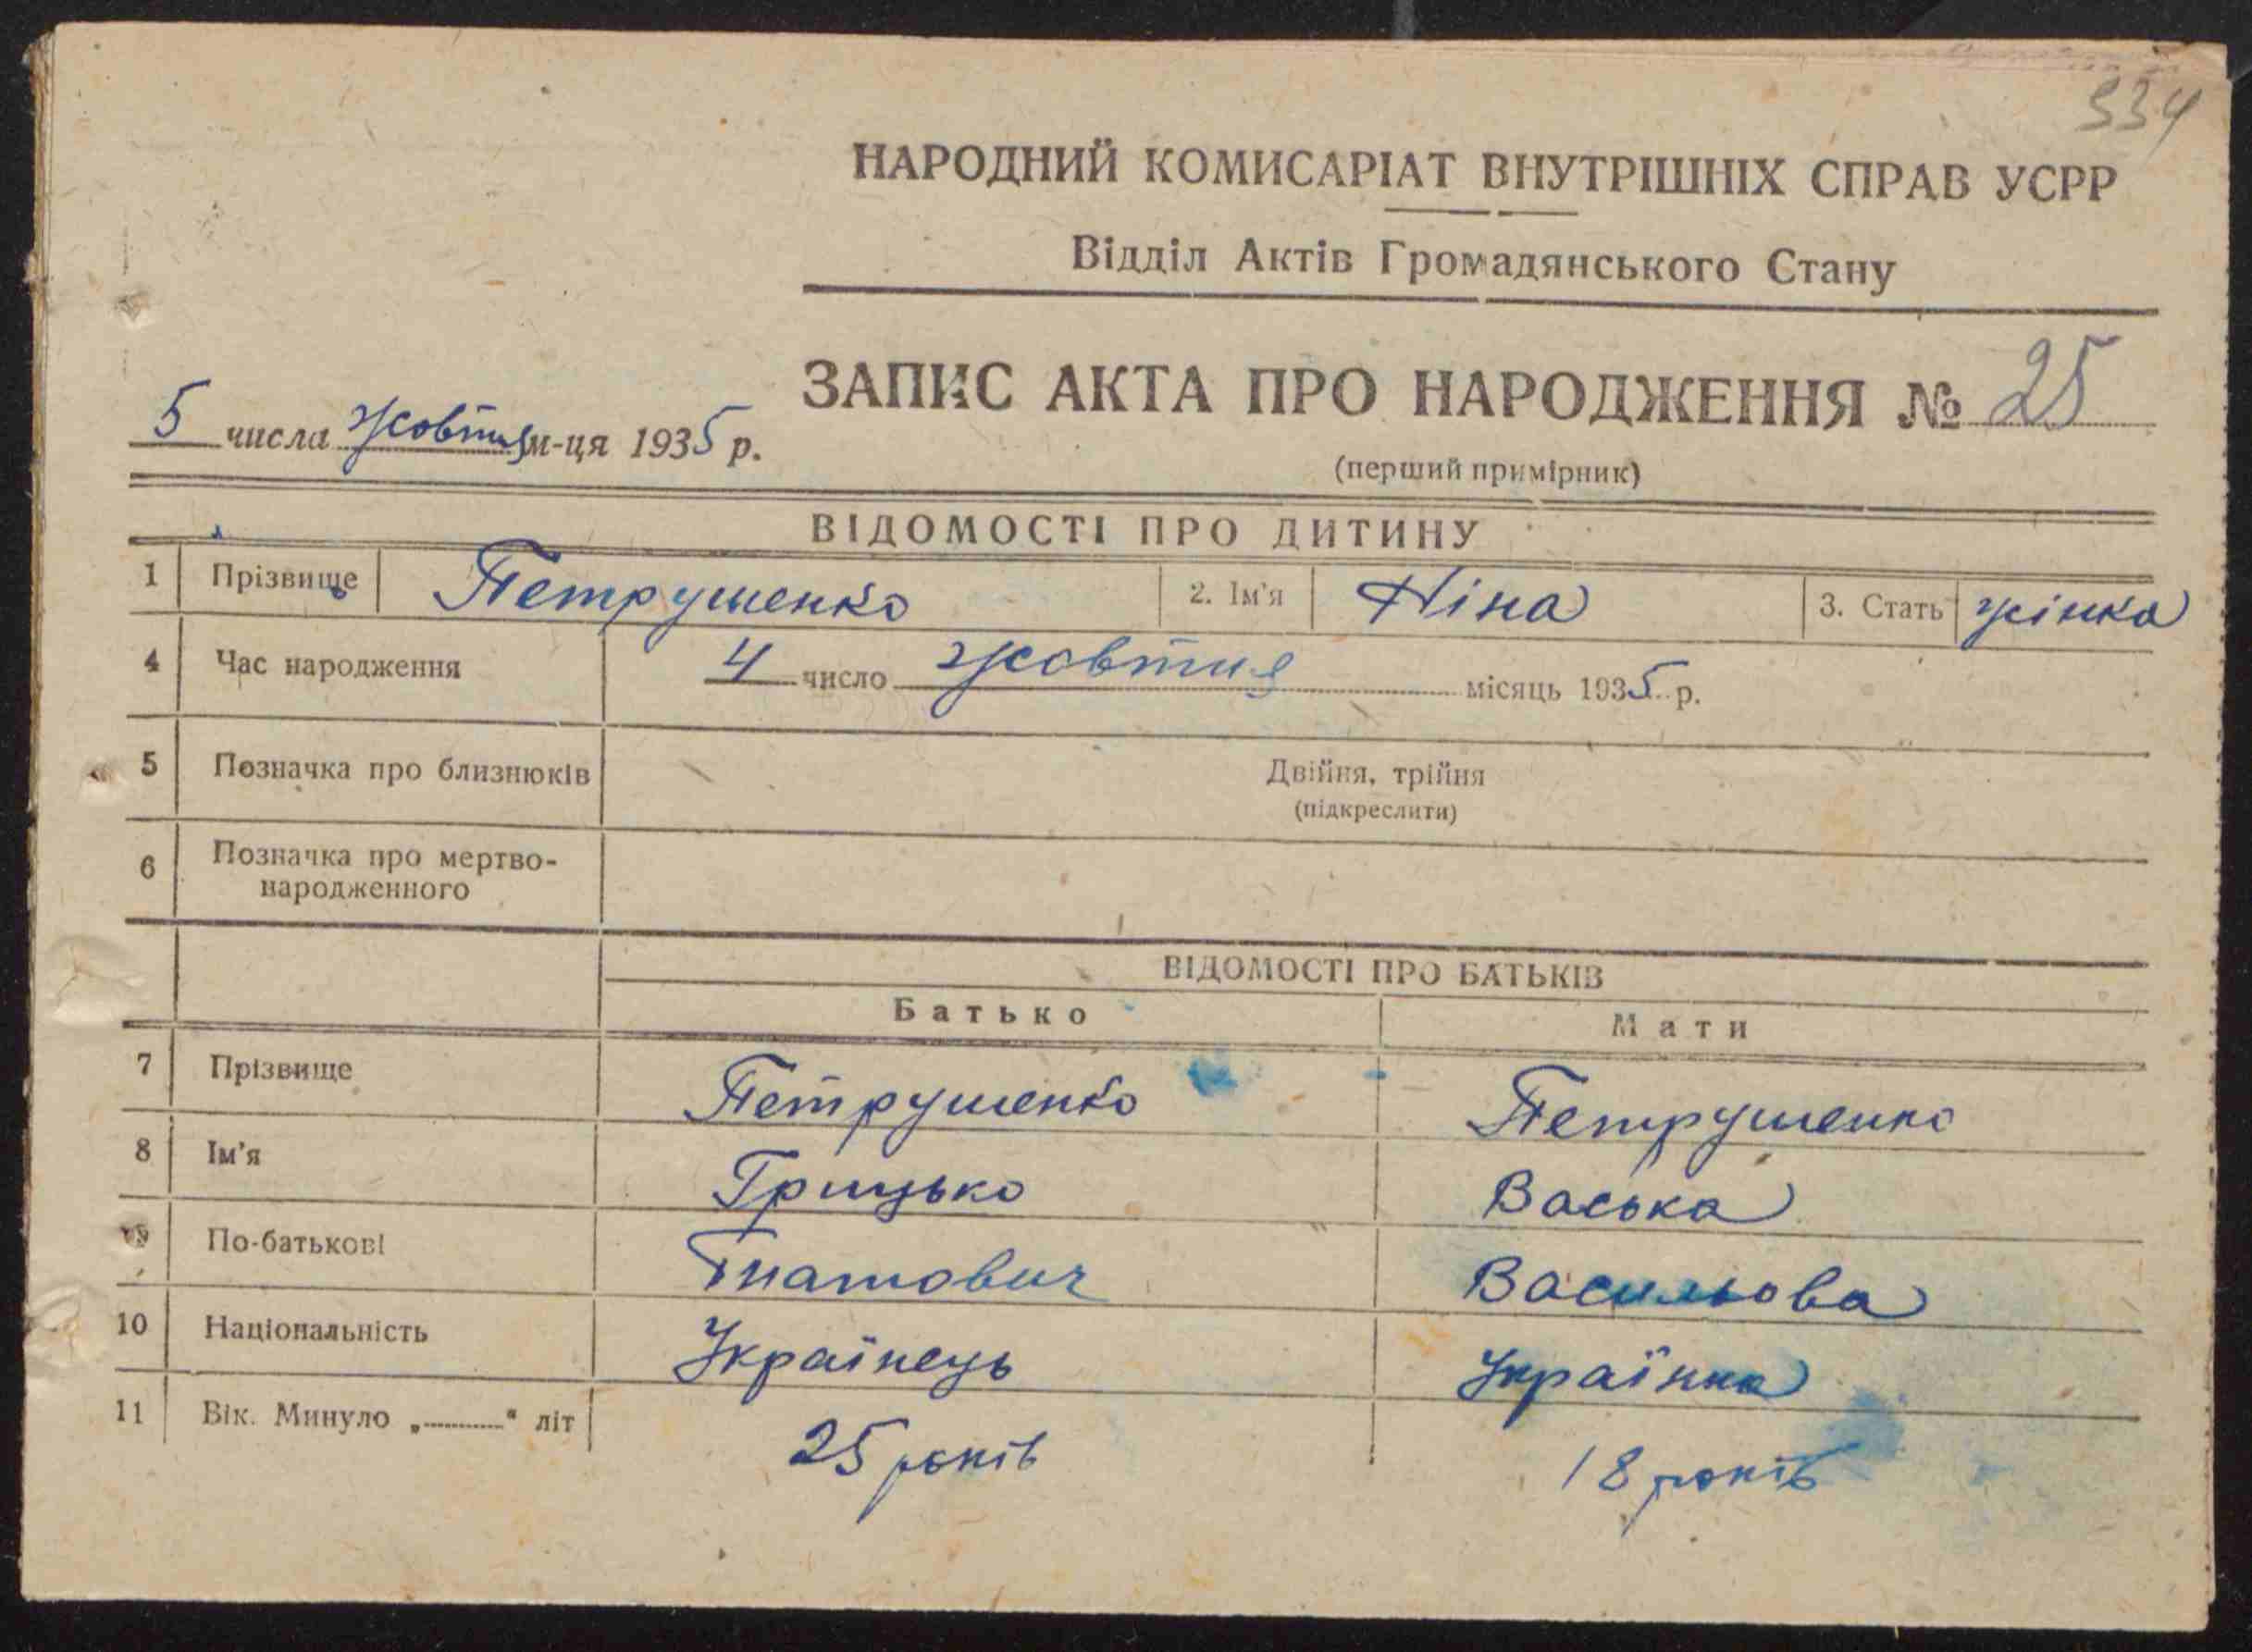 334
НАРОДНИЙ КОМИСАРІАТ ВНУТРІШНІХ СПРАВ УСРР
Відділ Актів Громадянського Стану
ЗАПИС АКТА ПРО НАРОДЖЕННЯ № 25
5 числа жовтня м-ця 1935 р.
(перший примірник)
ВІДОМОСТІ ПРО ДИТИНУ
1 Прізвище Петрушенко 2. Ім'я Ніна 3. Стать жінка
4 Час народження 4 число жовтня місяць 1935 р.
5 Позначка про близнюків Двійня, трійня
(підкреслити)
6 Позначка про мертво-
народженного
ВІДОМОСТІ ПРО БАТЬКІВ
Батько Мати
7 Прізвище Петрушенко Петрушенко
8 Ім'я Грицько Васька
9 По-батькові Гнатович Васильова
10 Національність Українець Українка
11 Вік. Минуло „ “ літ 25 років 18 років